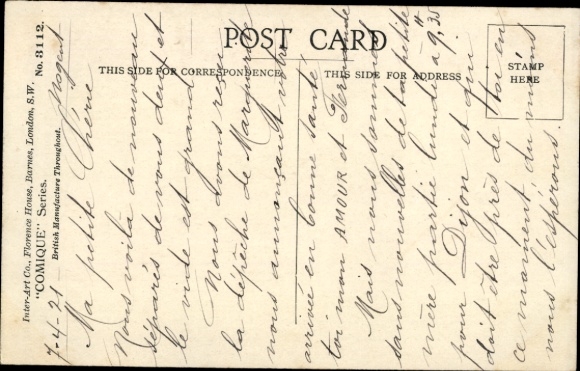 POST CARD
THIS SIDE FOR CORRESPONDENCE
THIS SIDE FOR ADDRESS
STAMP
HERE
Inter-Art Co., Florence House, Barnes, London, S.W.
"COMIQUE" Series. No. 3112.
British Manufacture Throughout.
7-4-21 - Nogent
Ma petite Chérie
Nous voilà de nouveau
séparés de vous deux et
le vide est grand.
Nous avons reçu
la dépêche de Marguerite
nous annonçant votre
arrivée en bonne santé
toi mon AMOUR et Fernande
Mais nous sommes
sans nouvelles de la petite
mère partie lundi à 9,35
pour Dijon et qui
doit être près de toi en
ce moment du moins
nous l'espérons.